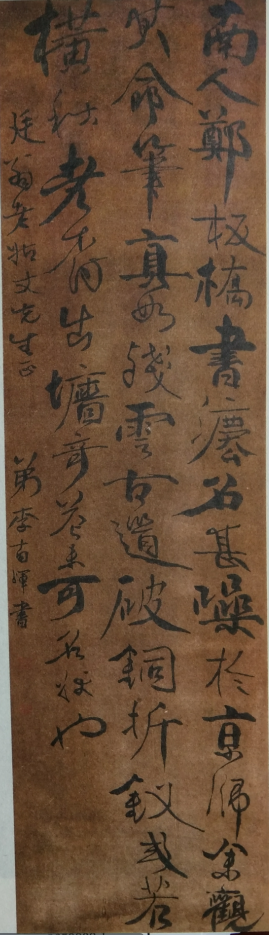 南人鄭板橋書法名甚噪於京師余觀
其命筆真如殘雲古道破銅折釵或若
橫秋老樹出牆奇蒼未可名狀也
廷翁老姻丈先生正
弟李南暉書